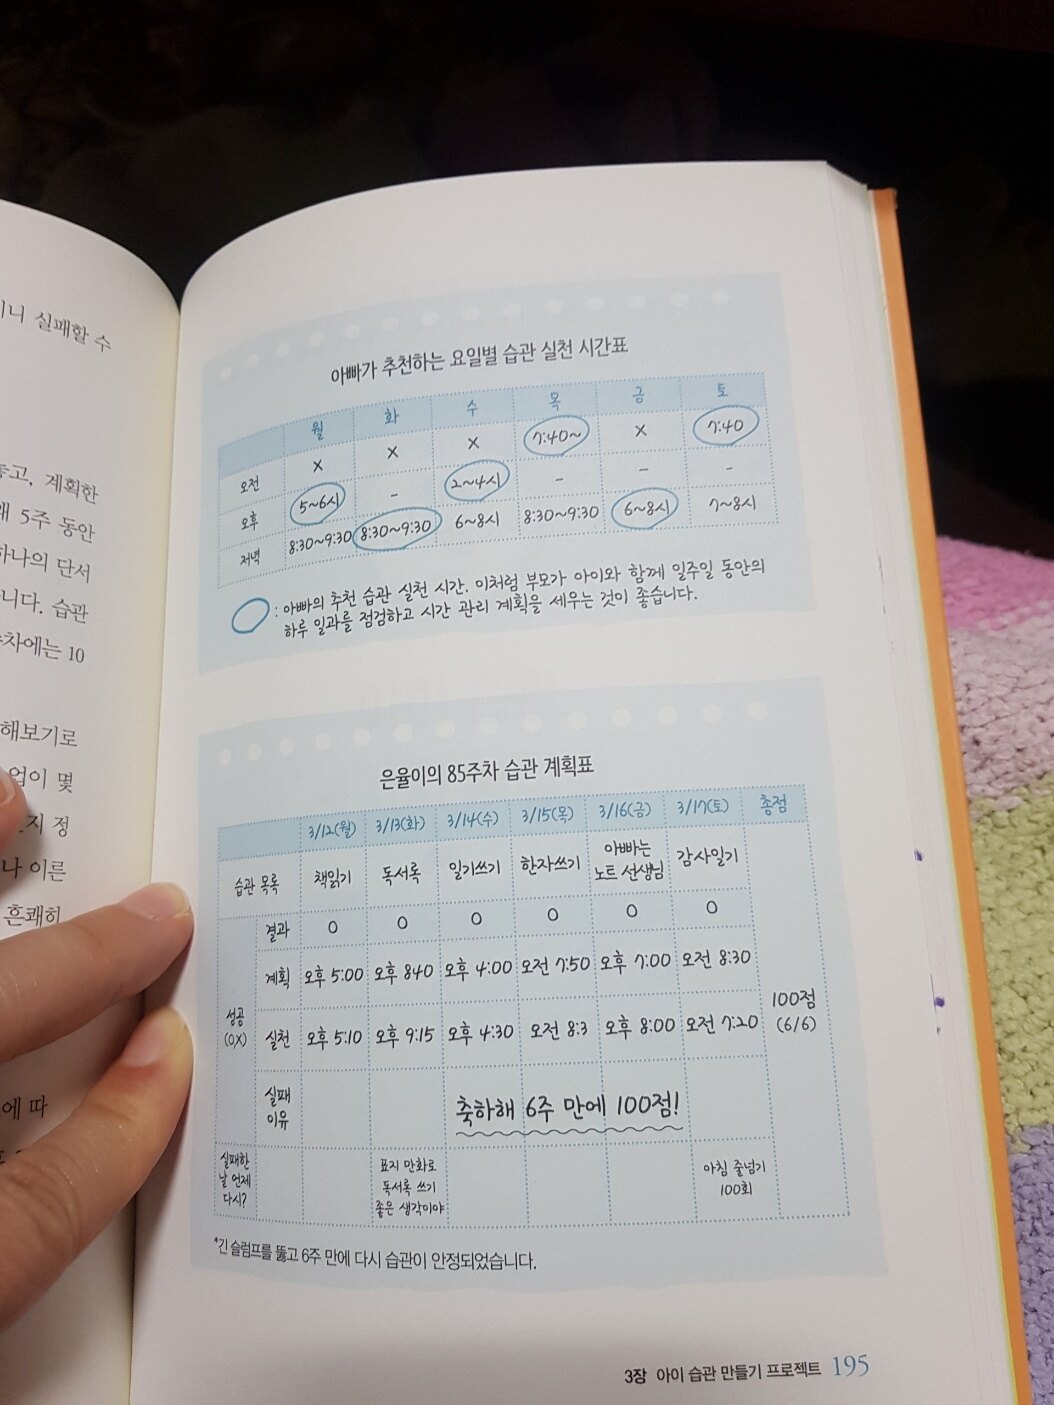 니 실패할 수
놓고, 계획한
5주 동안
하나의 단서
니다. 습관
차에는 10
해보기로
업이 몇
지 정
나 이른
흔쾌히
에 따
아빠가 추천하는 요일별 습관 실천 시간표
월 화 수 목 금 토
오전 X X X 7:40~ X 7:40
오후 5~6시 - 2~4시 - - -
저녁 8:30~9:30 8:30~9:30 6~8시 8:30~9:30 6~8시 7~8시
: 아빠의 추천 습관 실천 시간. 이처럼 부모가 아이와 함께 일주일 동안의
하루 일과를 점검하고 시간 관리 계획을 세우는 것이 좋습니다.
은율이의 85주차 습관 계획표
3/12(월) 3/13(화) 3/14(수) 3/15(목) 3/16(금) 3/17(토) 총점
습관 목록 책읽기 독서록 일기쓰기 한자쓰기 아빠는 노트 선생님 감사일기
성공 (O,X)
결과 O O O O O O
계획 오후 5:00 오후 840 오후 4:00 오전 7:50 오후 7:00 오전 8:30
실천 오후 5:10 오후 9:15 오후 4:30 오전 8:3 오후 8:00 오전 7:20
100점
(6/6)
실패
이유
축하해 6주 만에 100점!
실패한
날 언제
다시?
표지 만화로
독서록 쓰기
좋은 생각이야
아침 줄넘기
100회
*긴 슬럼프를 뚫고 6주 만에 다시 습관이 안정되었습니다.
3장 아이 습관 만들기 프로젝트 195